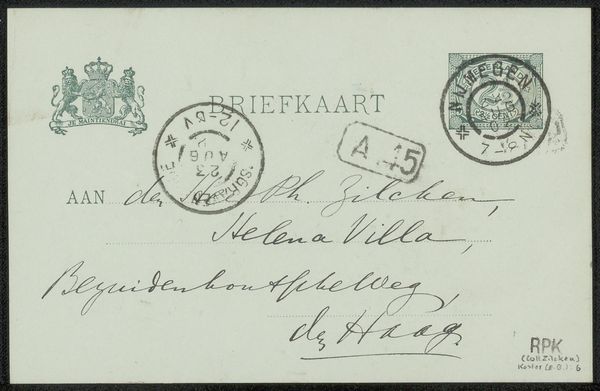 JE MAINTIENDRAI
BRIEFKAART
NIJMEGEN
7-8N
12-8V
23
AUG
A 45
AAN den Heer Ph. Zilcken,
Helena Villa,
Bezuidenhoutscheweg,
den Haag.
RPK
(coll Zilcken)
Koster (E.B.): 6